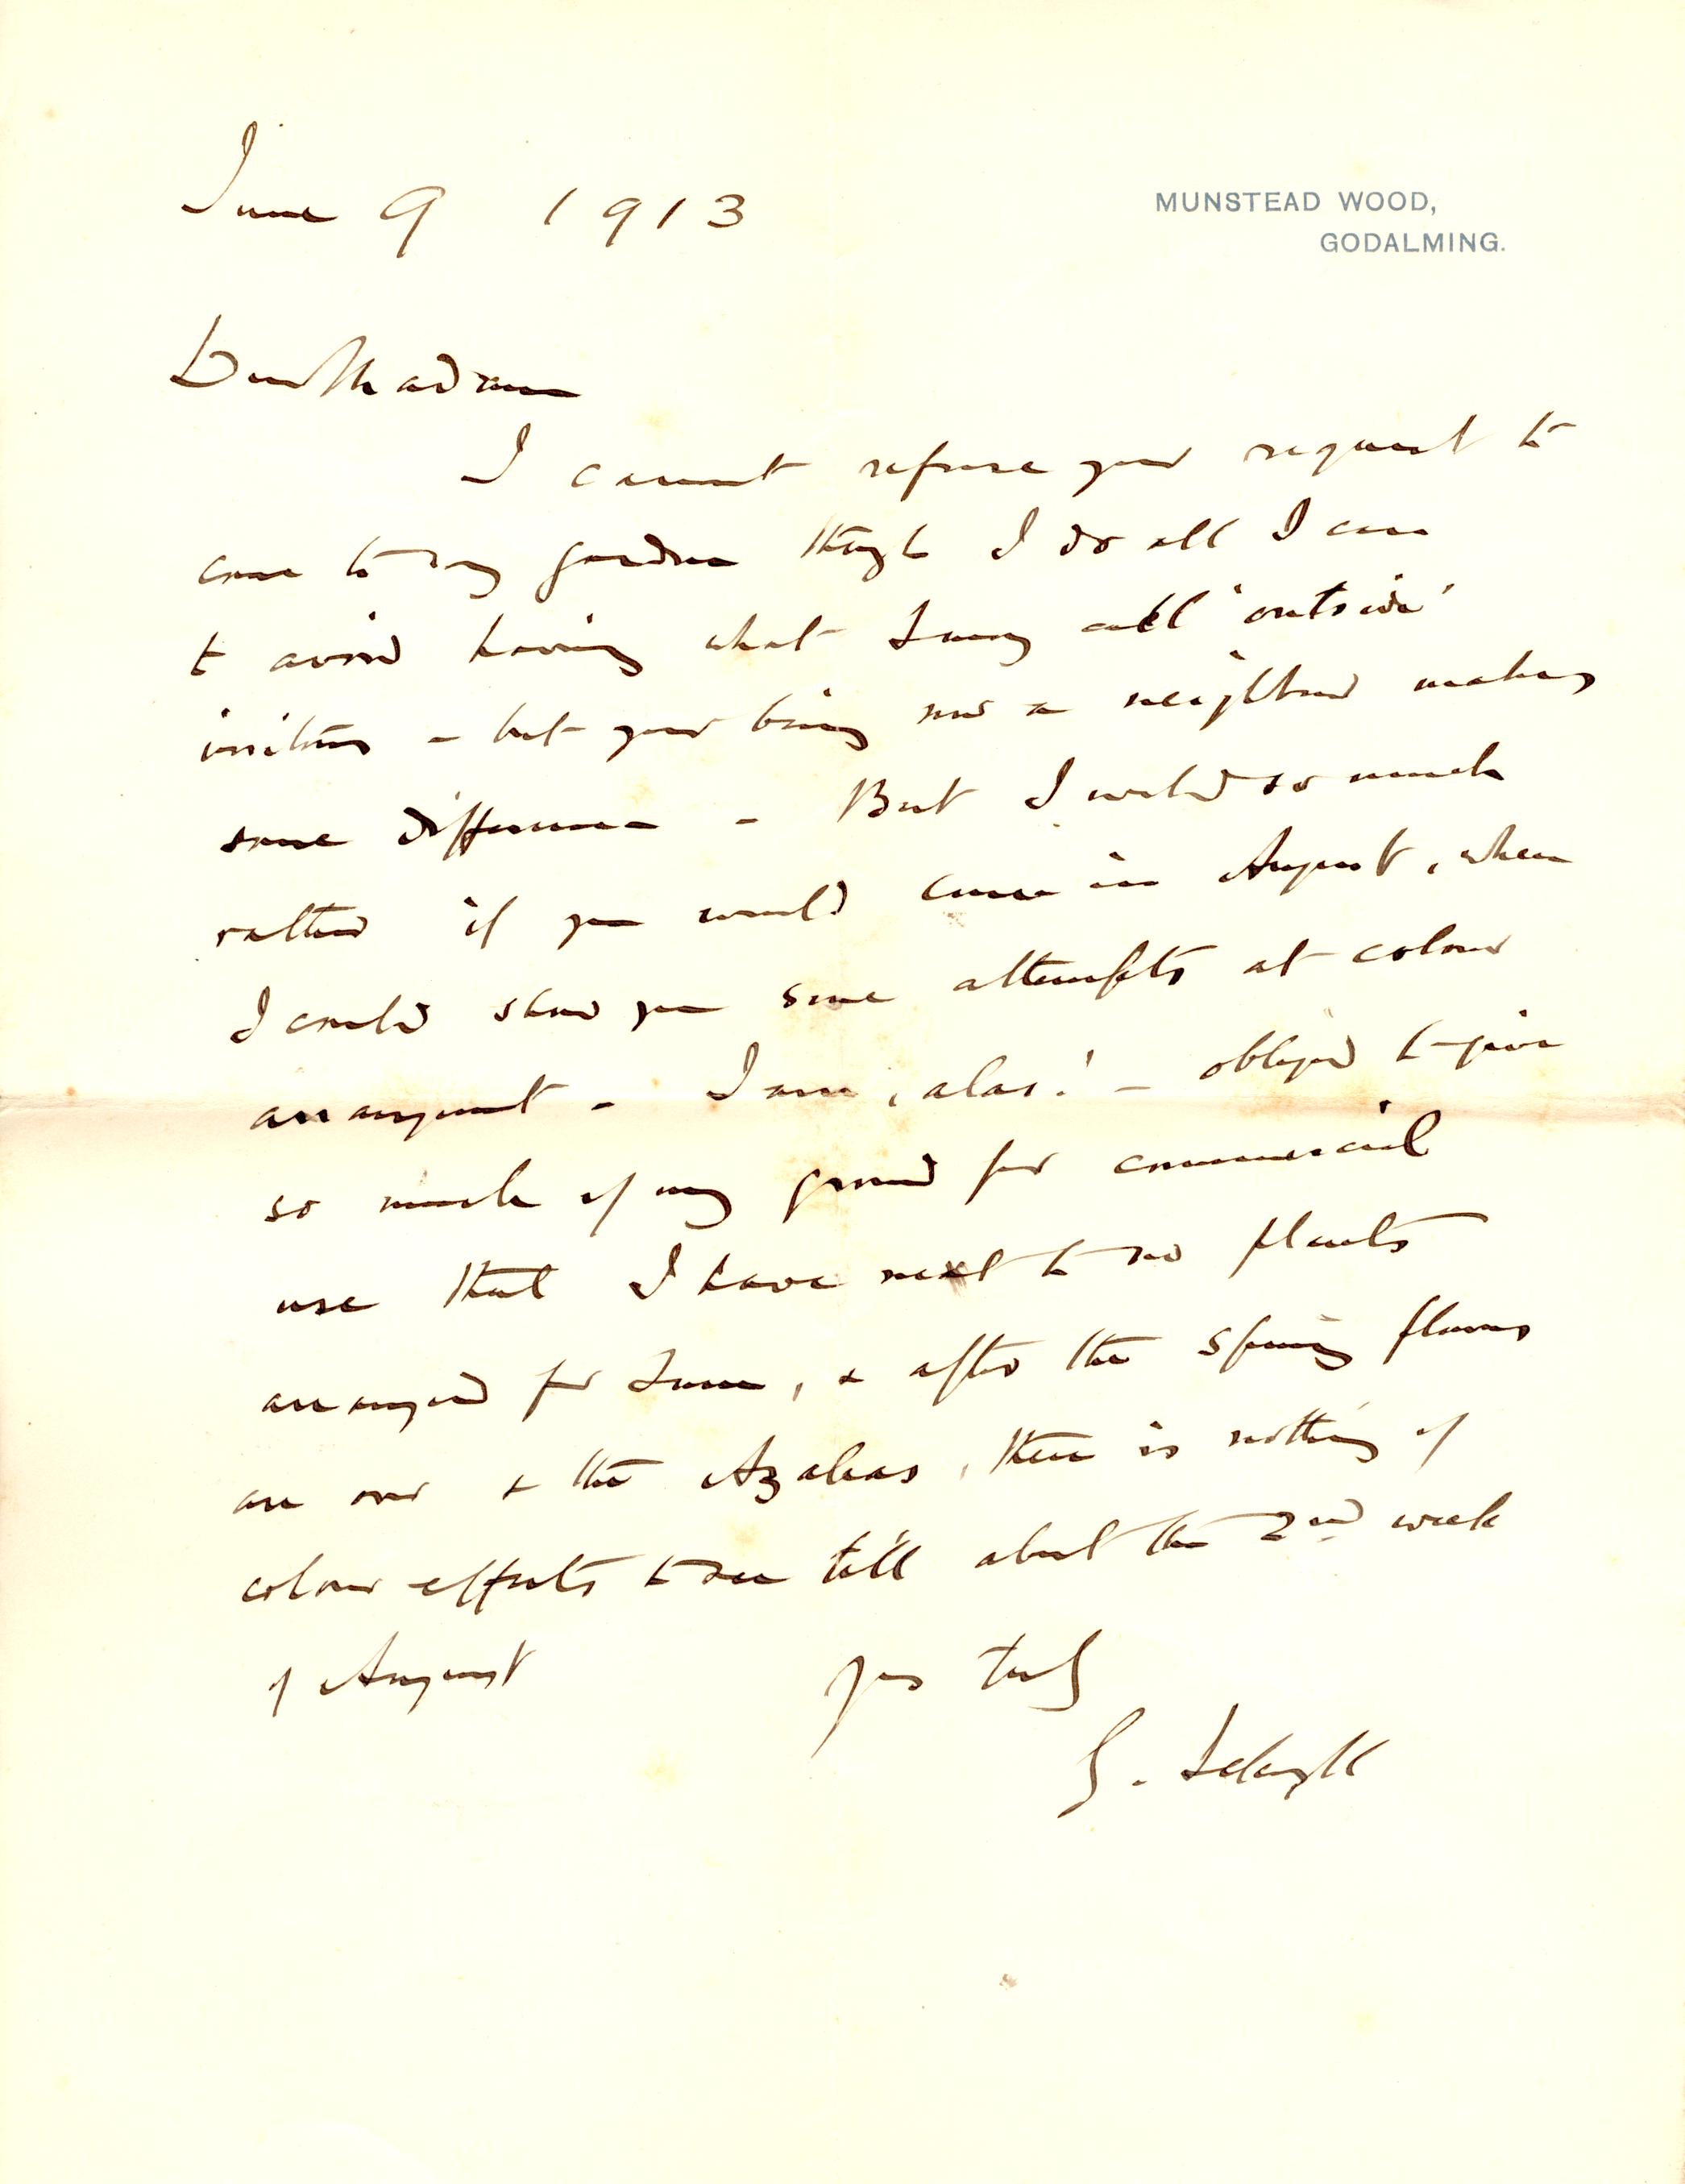 June 9 1913
MUNSTEAD WOOD,
GODALMING.
Dear Madam
I cannot refuse your request to
come to my garden though I do all I can
to avoid having what I may call 'outside'
visitors - but your being now a neighbour makes
some difference - But I would so much
rather if you would come in August, when
I could show you some attempts at colour
arrangement - I am, alas! - obliged to give
so much of my ground for commercial
use that I have next to no plants
arranged for June, & after the Spring flowers
are over & the Azaleas, there is nothing of
colour effects to see till about the 2nd week
of August
yrs truly
G. Jekyll